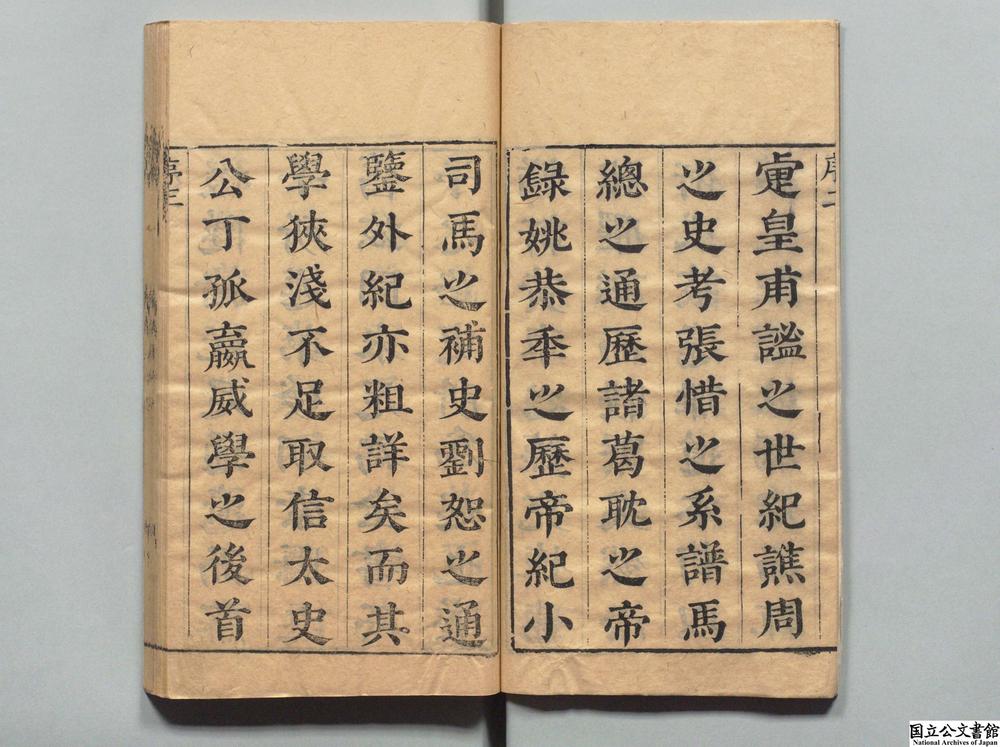 序二
疌皇甫謐之世紀譙周
之史考張愔之系譜馬
總之通歷諸葛耽之帝
錄姚恭秊之歷帝紀小
司馬之補史劉恕之通
鑒外紀亦粗詳矣而其
學狹淺不足取信太史
公丁孤嬴威學之後首
序三
国立公文書館
National Archives of Japan